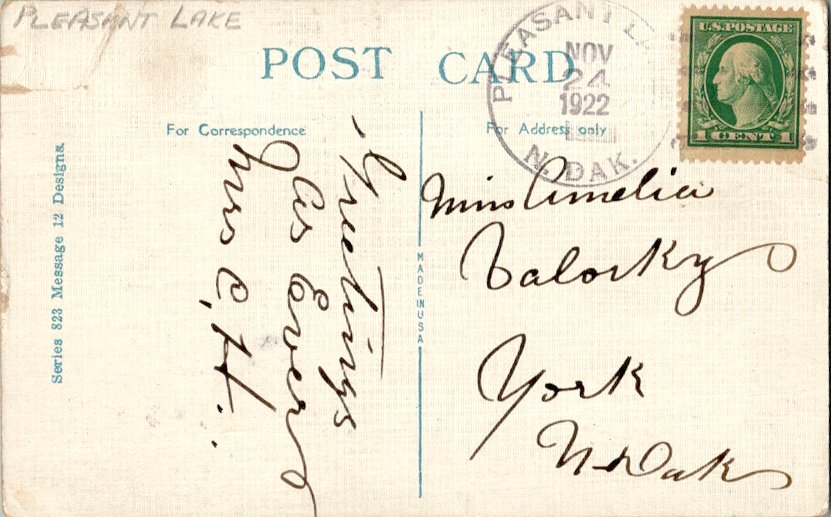 PLEASANT LAKE
POST CARD
PLEASANT LA
NOV
24
1922
N. DAK.
U.S. POSTAGE
1 CENT 1
For Correspondence
For Address only
Greetings
As Ever
Mrs C. H.
Series 823 Message 12 Designs.
MADE IN USA
Miss Amelia
York
N. Dak